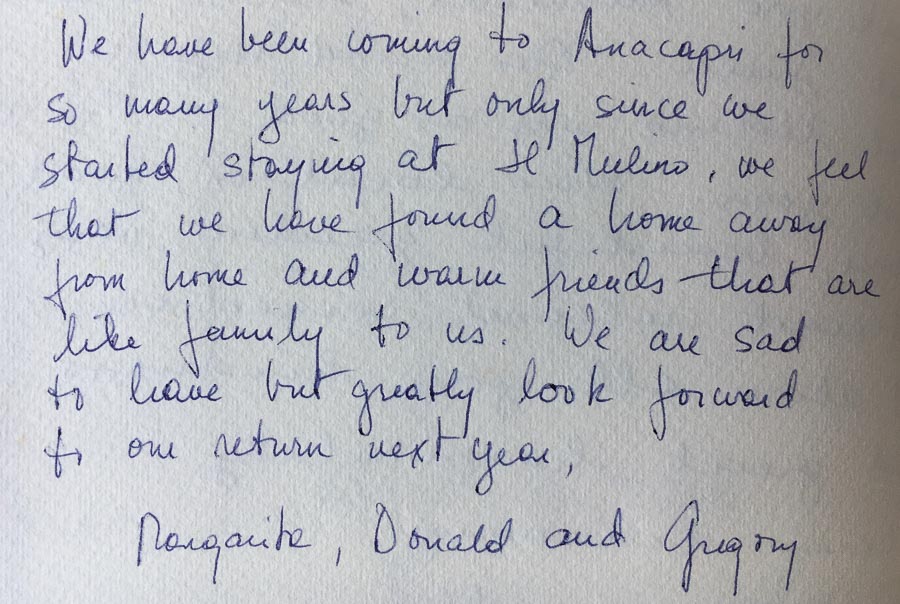 We have been coming to Anacapri for
so many years but only since we
started staying at Il Mulino, we feel
that we have found a home away
from home and warm friends that are
like family to us. We are sad
to leave but greatly look forward
to our return next year,
Margarita, Donald and Gregory